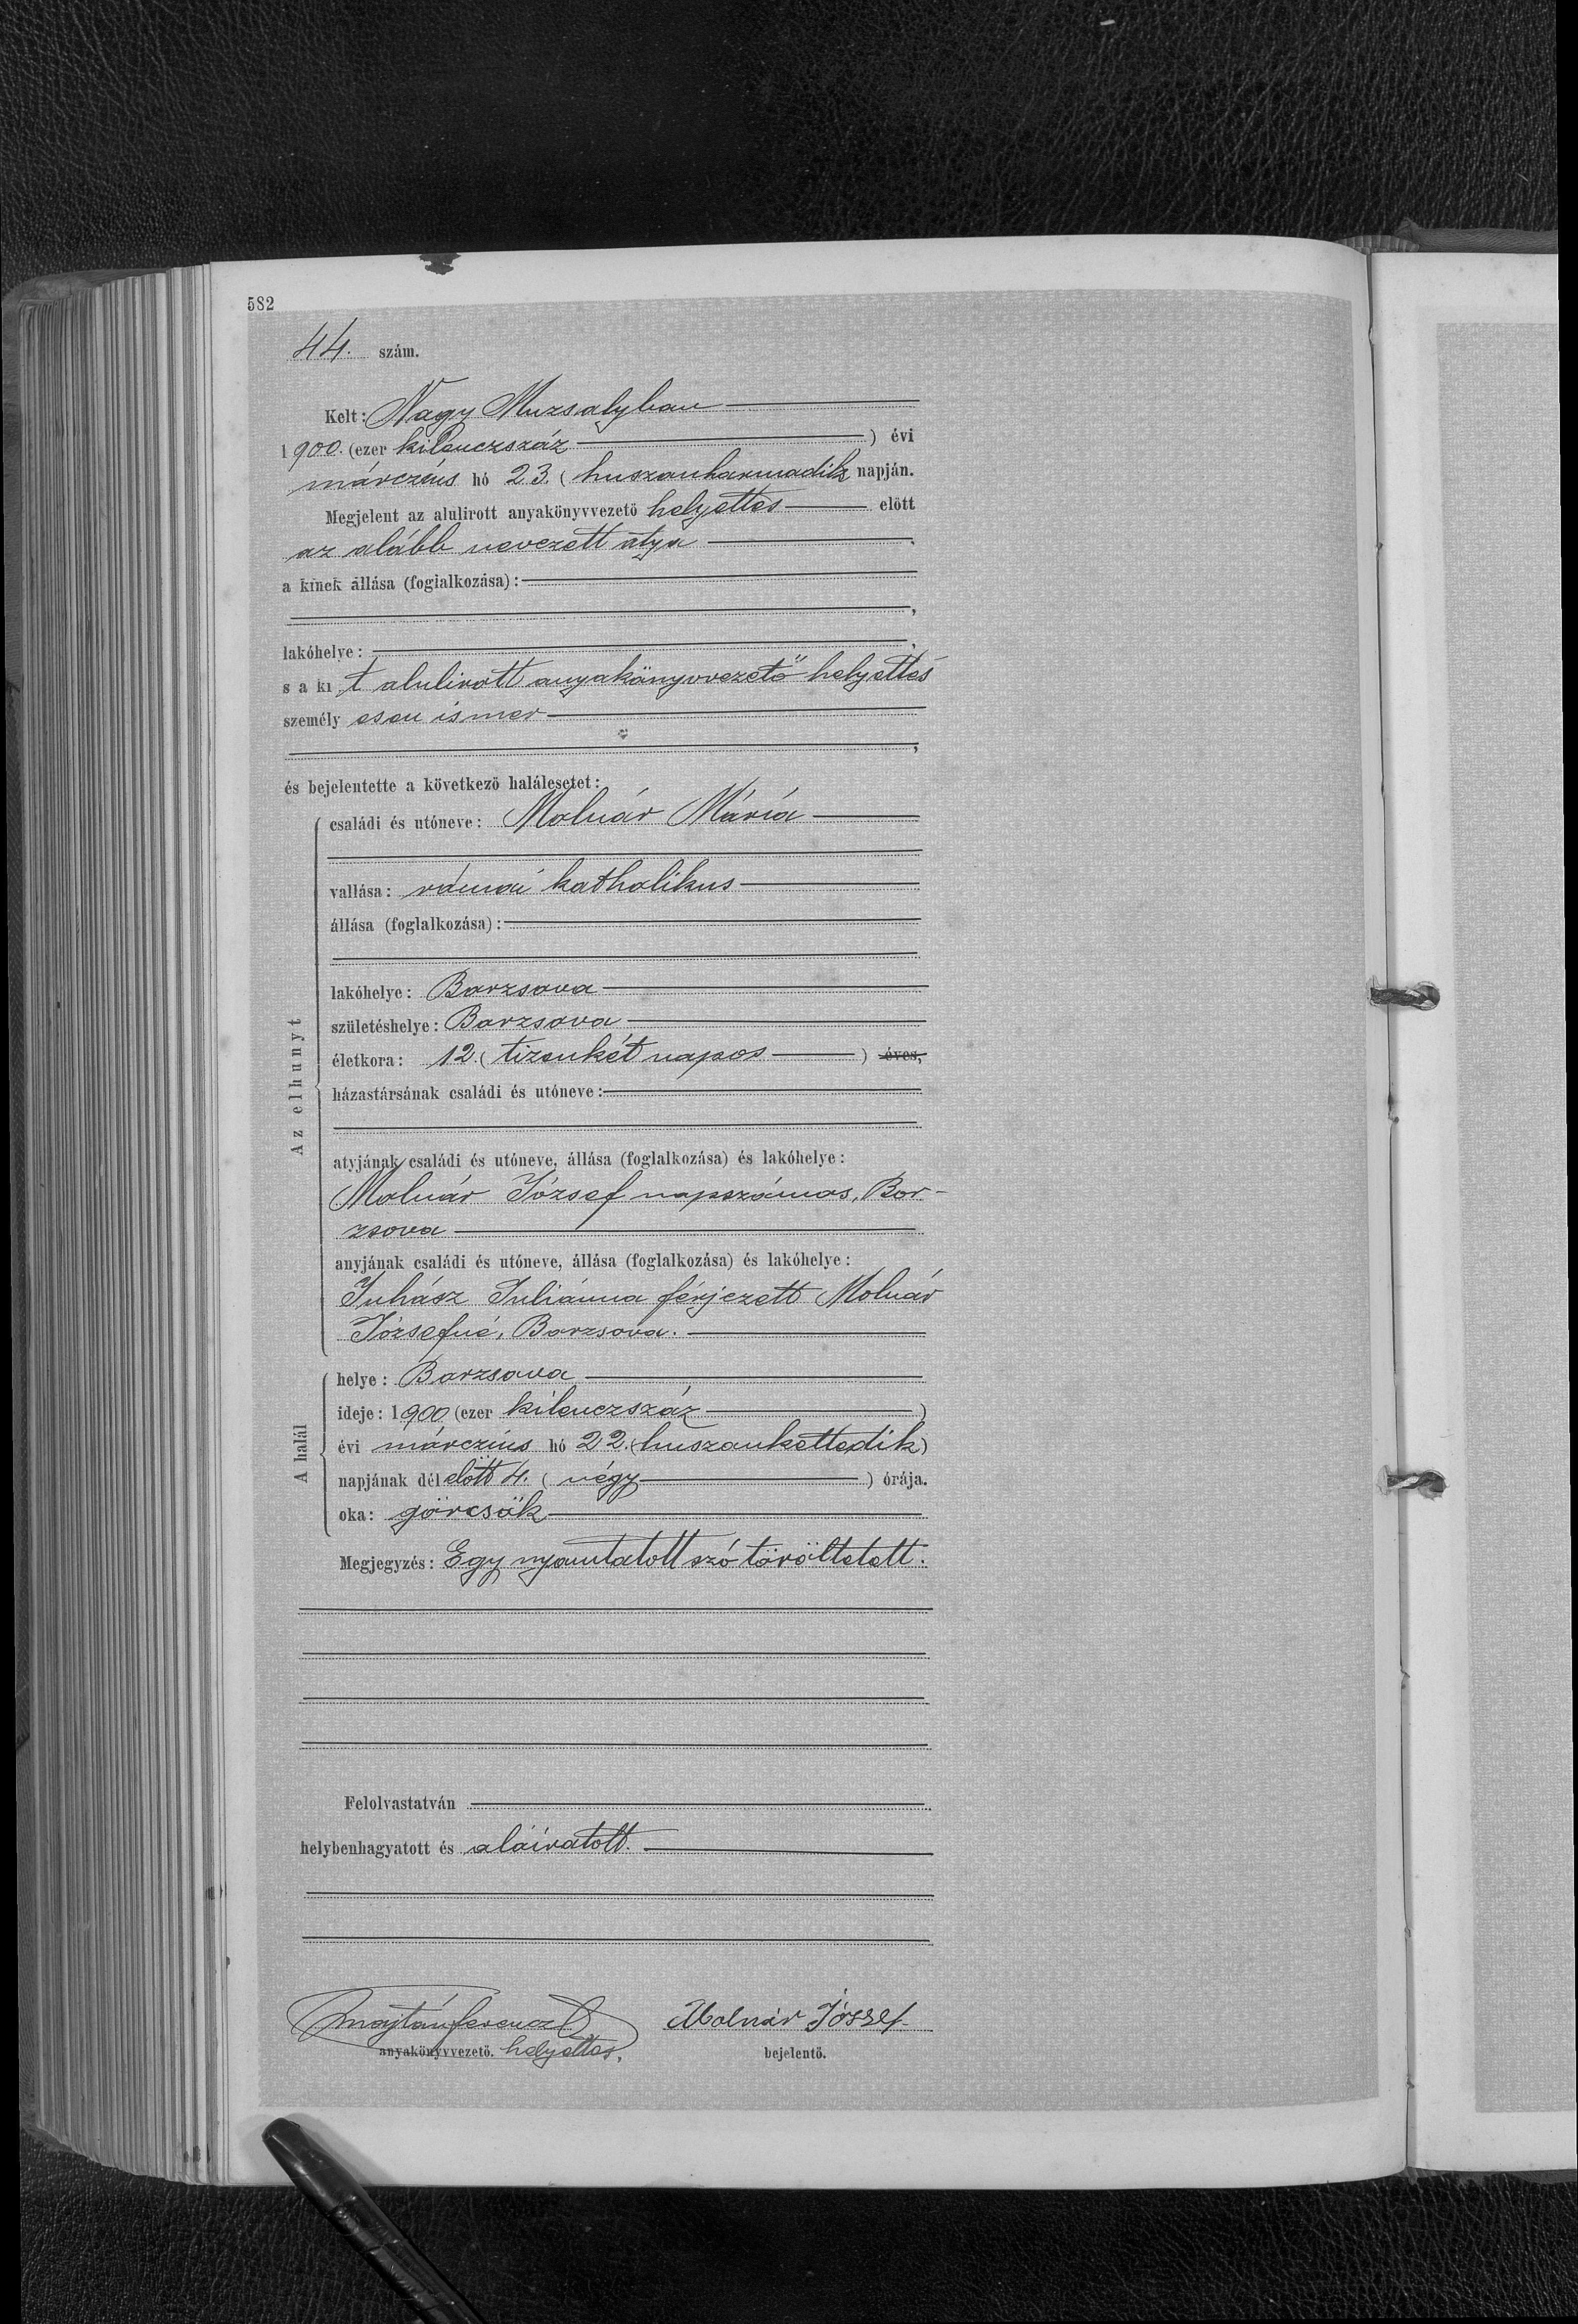 582
44. szám.
Kelt: Nagy Muzsalyban
1900. (ezer kilenczszáz ) évi
márczius hó 23. (huszonharmadik napján.
Megjelent az alulirott anyakönyvvezető helyettes előtt
az alább nevezett atya
a kinek állása (foglalkozása):
,
lakóhelye: ,
s a kit alulirott anyakönyvvezető helyettes
személyesen ismer
,
és bejelentette a következő halálesetet:
Az elhunyt
családi és utóneve: Molnár Mária
vallása: római katholikus
állása (foglalkozása):
lakóhelye: Borzsova
születéshelye: Borzsova
életkora: 12. (tizenkét napos ) éves,
házastársának családi és utóneve:
atyjának családi és utóneve, állása (foglalkozása) és lakóhelye:
Molnár József napszámos, Bor-
zsova
anyjának családi és utóneve, állása (foglalkozása) és lakóhelye:
Juhász Juliánna férjezett Molnár
Józsefné, Borzsova.
A halál
helye: Borzsova
ideje: 1900 (ezer kilenczszáz )
évi márczius hó 22. (huszonkettedik)
napjának délelőtt 4. (négy ) órája.
oka: görcsök
Megjegyzés: Egy nyomtatott szó töröltetett.
Felolvastatván
helybenhagyatott és aláíratott.
Majtán Ferencz Molnár József.
anyakönyvvezető. helyettes. bejelentő.